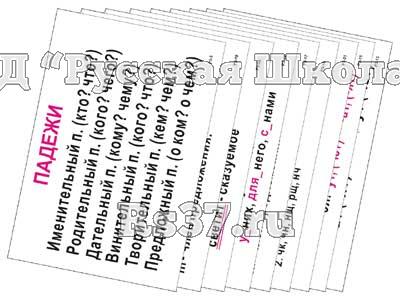 ПАДЕЖИ
Именительный п. (кто? что?)
Родительный п. (кого? чего?)
Дательный п. (кому? чему?)
Винительный п. (кого? что?)
Творительный п. (кем? чем?)
Предложный п. (о ком? о чем?)
светит - сказуемое
у_них, для_него, с_нами
2. чк, чн, нщ, рщ, нч
Д “Русская Школа
Rs37.ru